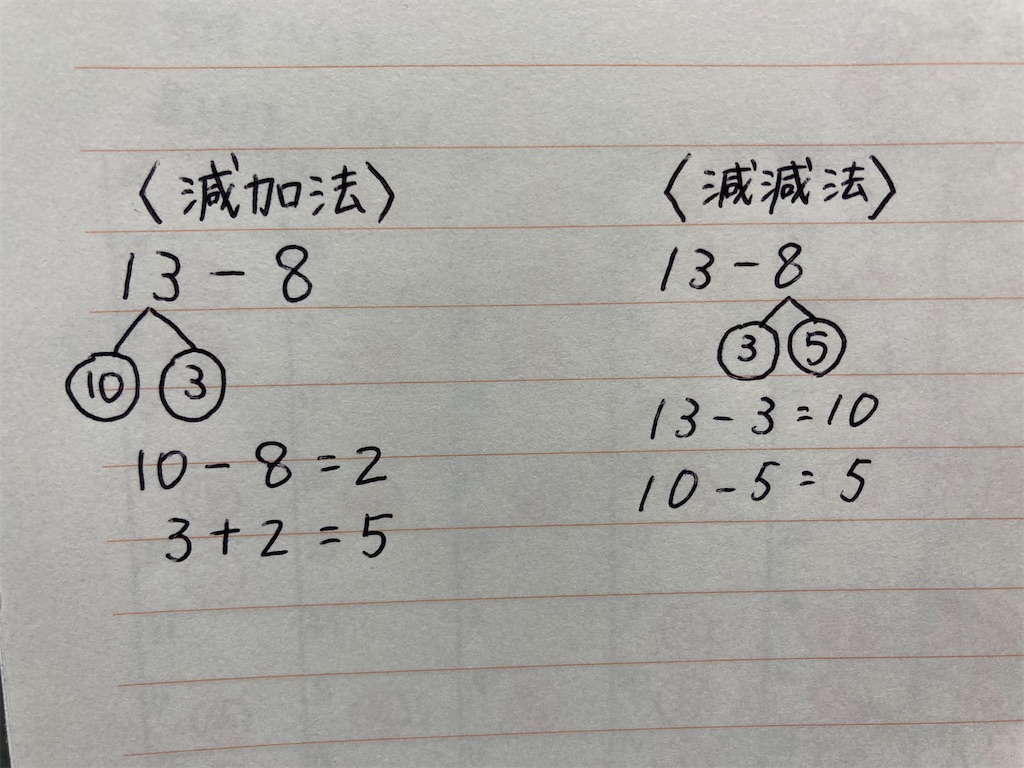 〈減加法〉
13 - 8
10 3
10 - 8 = 2
3 + 2 = 5
〈減減法〉
13 - 8
3 5
13 - 3 = 10
10 - 5 = 5